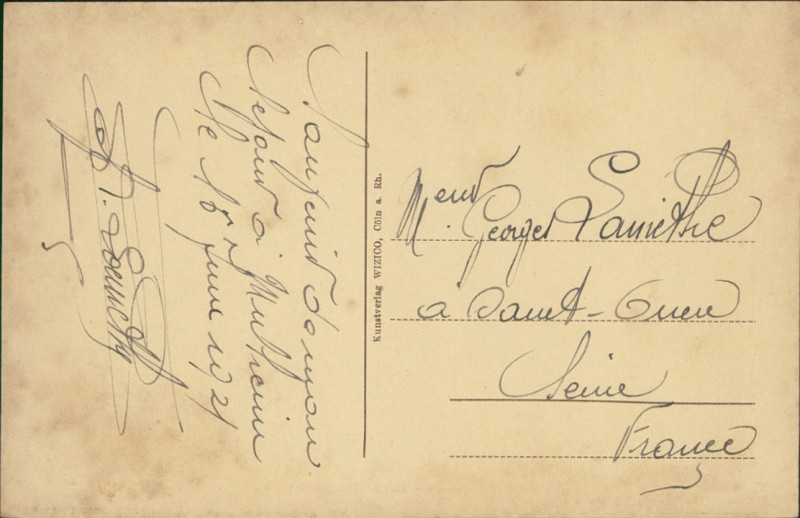 Souvenir de mon
séjour a Mulheim
le 15 Juin 1921
Kunstverlag WIZICO, Cöln a. Rh.
Meur Georges
a Saint-Ouen
Seine
France